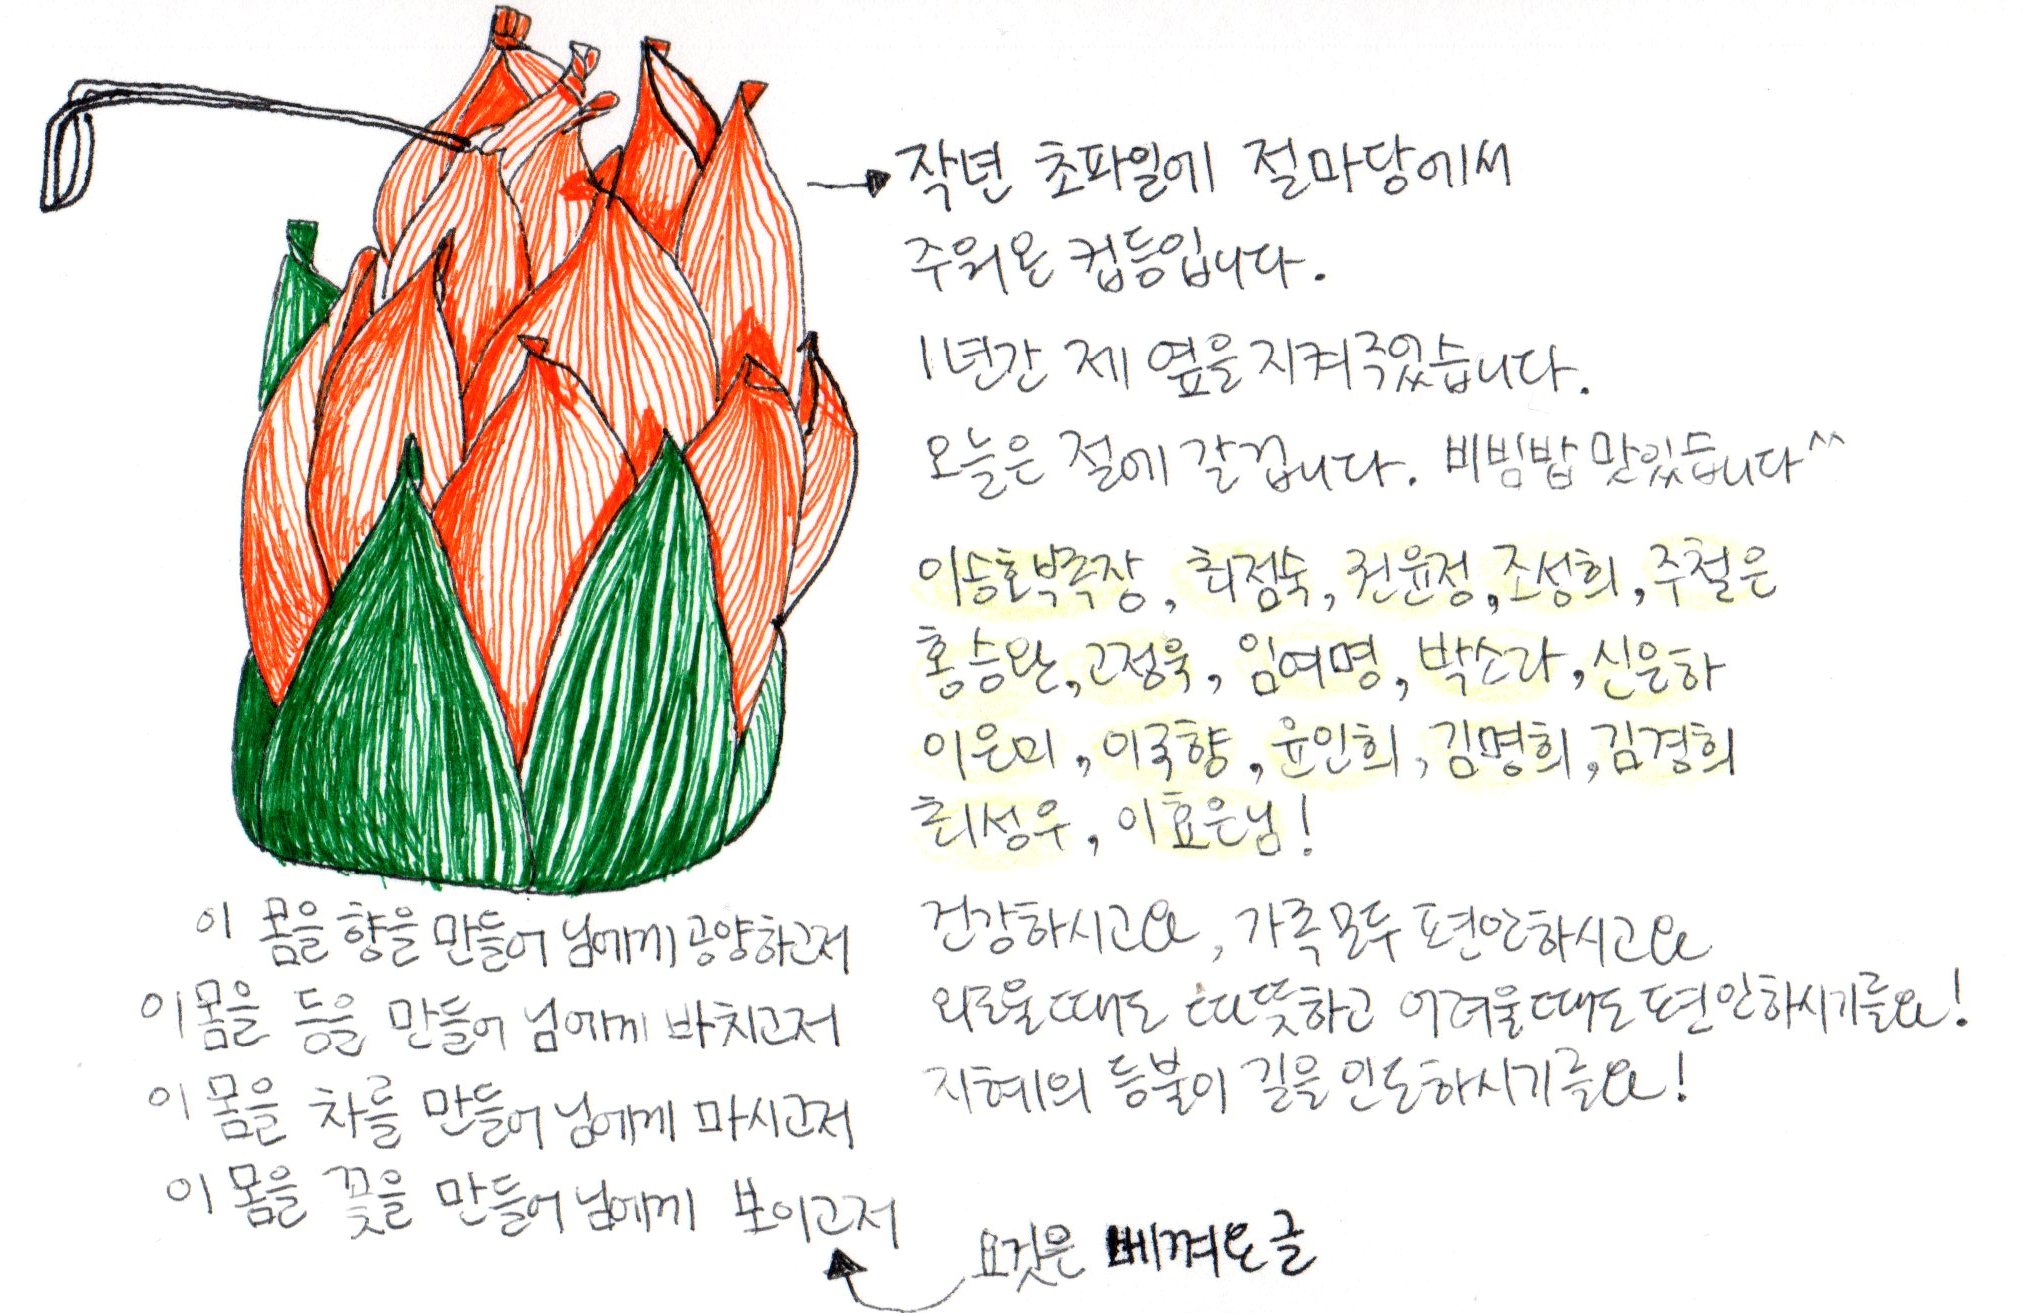 작년 초파일에 절마당에서
주워온 컵등입니다.
1년간 제 옆을 지켜주었습니다.
오늘은 절에 갈겁니다. 비빔밥 맛있습니다^^
이승호박족장, 최점숙, 전윤정, 조성희, 주철은
홍승완, 고정욱, 임여명, 박소라, 신은하
이은미, 이국향, 윤인희, 김명희, 김경희
최성우, 이효은님!
건강하시고요, 가족모두 편안하시고요
외로울때도 따뜻하고 어려울때도 편안하시기를요!
지혜의 등불이 길을 인도하시기를요!
이 몸을 향을 만들어 님에게 공양하고저
이 몸을 등을 만들어 님에게 바치고저
이 몸을 차를 만들어 님에게 마시고저
이 몸을 꽃을 만들어 님에게 보이고저
요것은 베껴온글